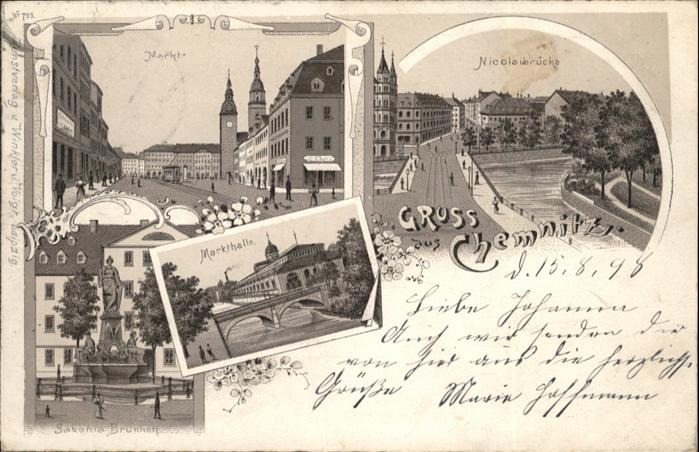 No 795.
Markt.
Nicolaibrücke
GRUSS
aus
Chemnitz.
Markthalle.
Saxonia Brunnen.
d. 15.8.98
Liebe Johanna
Auch wir senden dir
von hier aus die herzlichst.
Grüße Marie Hoffmann
Kunstverlag v. Winkler & Voigt, Leipzig